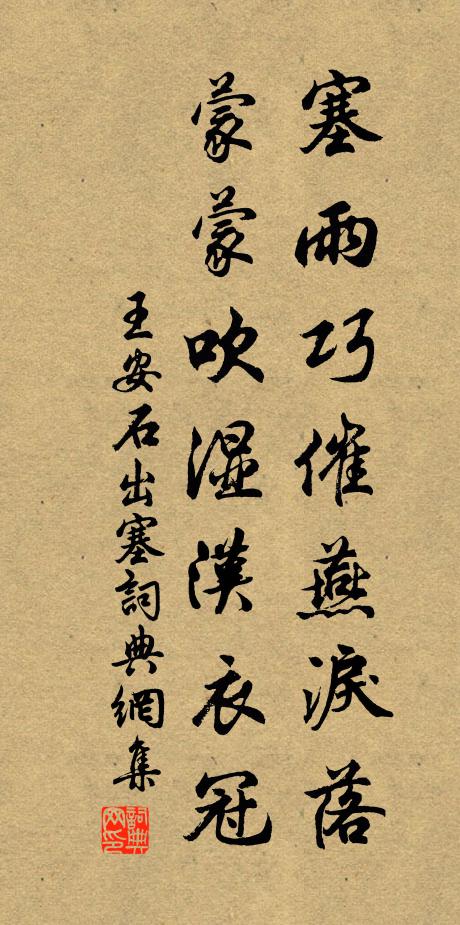 塞雨巧催燕淚落
蒙蒙吹濕漢衣冠
王安石出塞詞典網集
詞典網印